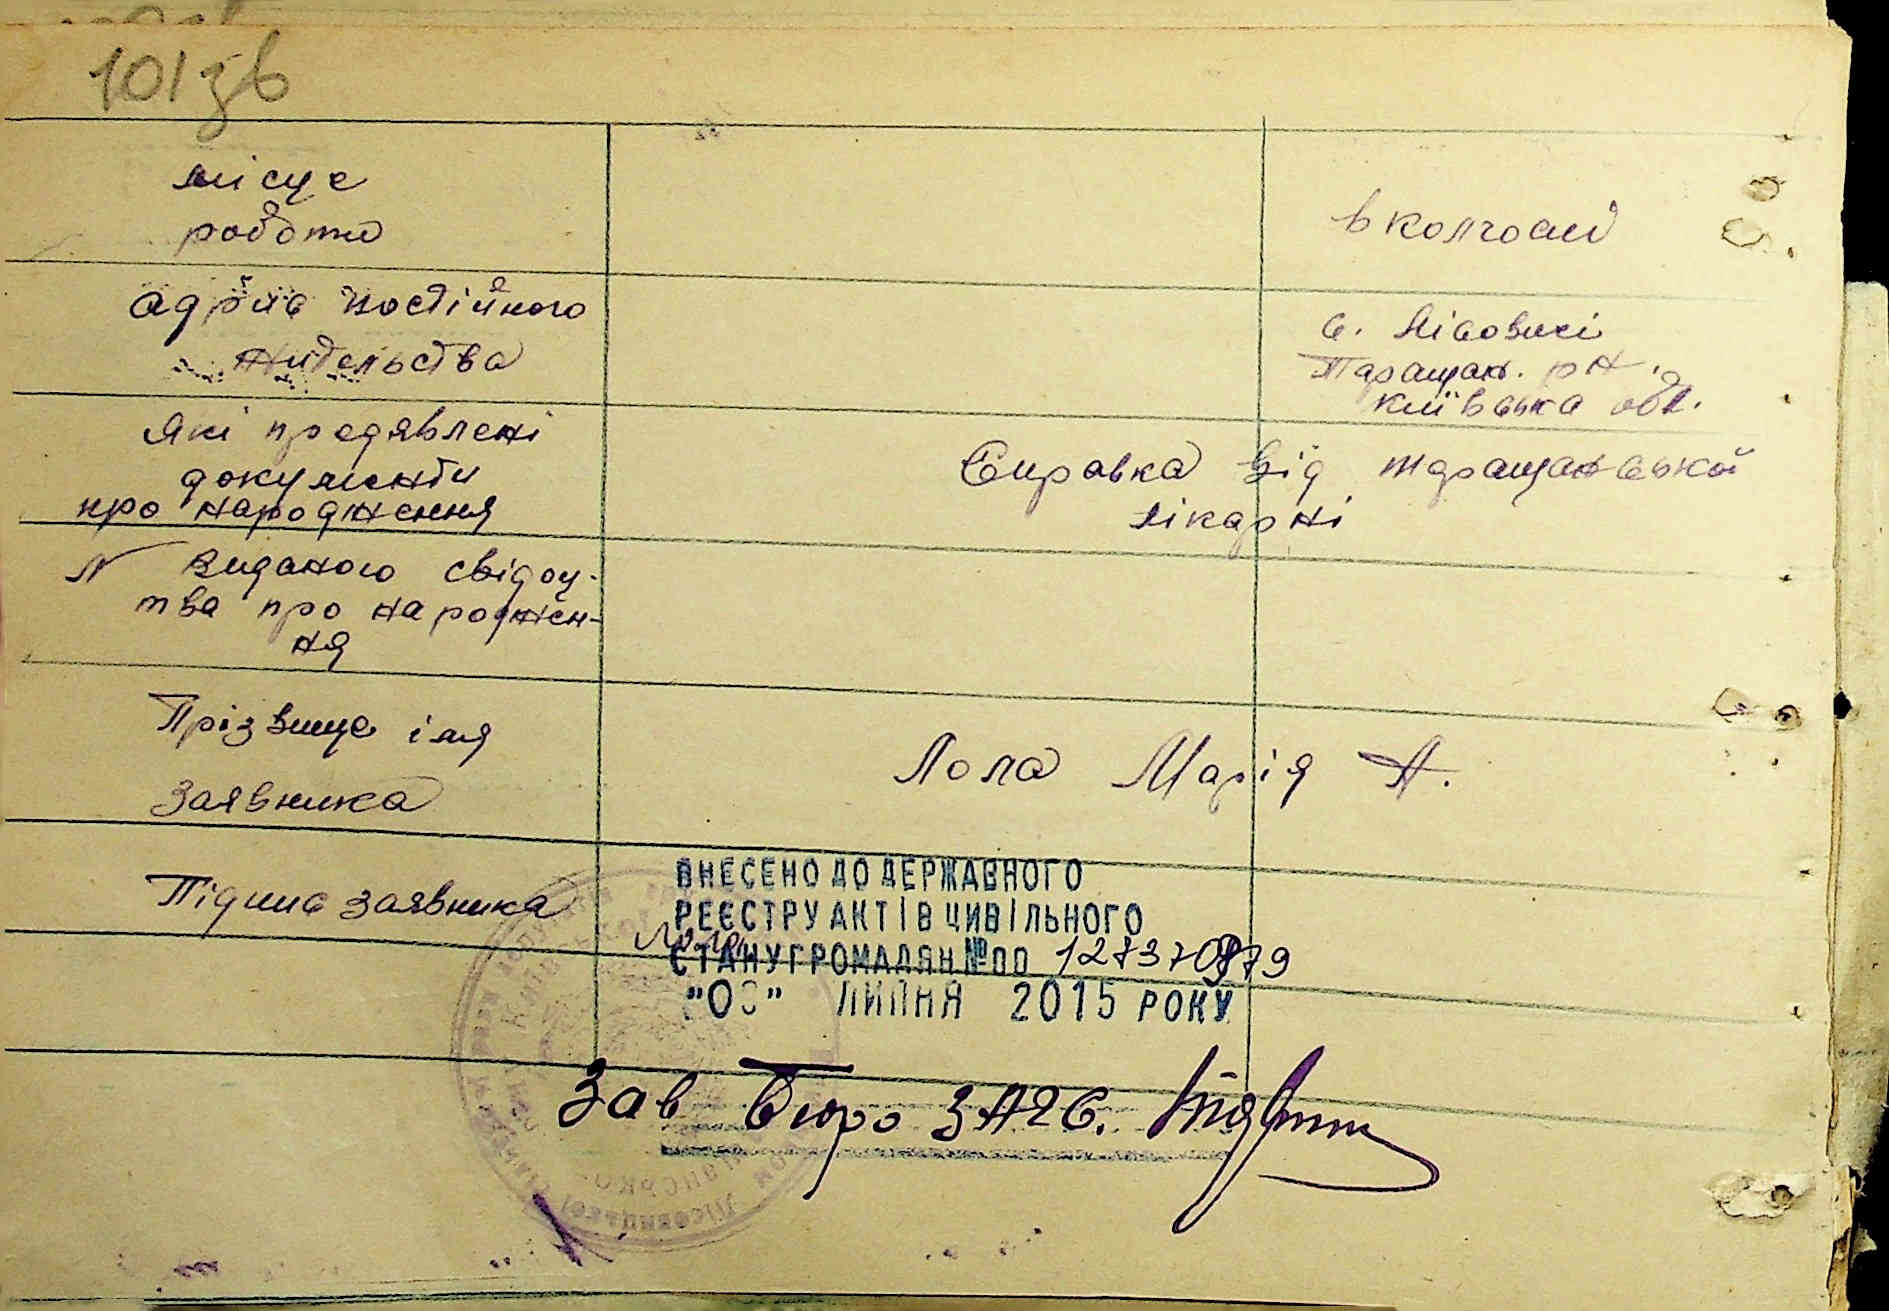 101зв
місце
роботи
в колгоспі
адрис постійного
жительства
с. Лісовичі
Таращан. р-н.
київська обл.
які предявлені
документи
про народження
Справка від таращанської
лікарні
N виданого свідоц-
тва про народжен-
ня
Прізвище імя
заявника
Лола Марія А.
Підпис заявника
Лола
ВНЕСЕНО ДО ДЕРЖАВНОГО
РЕЄСТРУ АКТІВ ЦИВІЛЬНОГО
СТАНУ ГРОМАДЯН № ПП
ЛИПНЯ 2015 РОКУ
Зав Бюро ЗАГС.